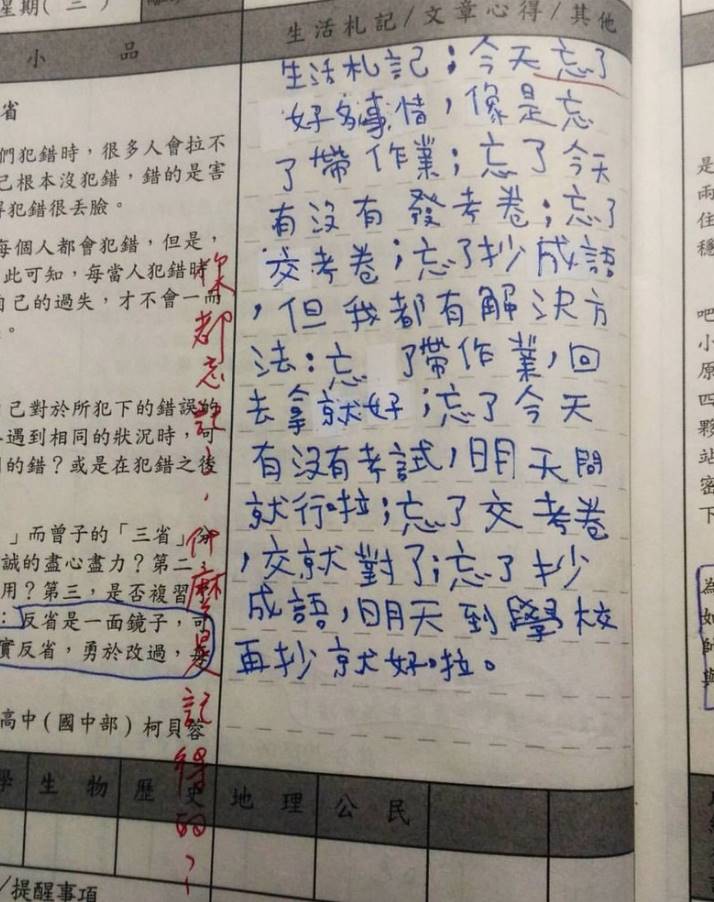 星期(二)
生活札記/文章心得/其他
小品
省
們犯錯時，很多人會拉不
己根本沒犯錯，錯的是害
得犯錯很丟臉。
每個人都會犯錯，但是，
此可知，每當人犯錯時
自己的過失，才不會一而
。
己對於所犯下的錯誤的
遇到相同的狀況時，可
的錯？或是在犯錯之後
」而曾子的「三省」分
誠的盡心盡力？第二，
用？第三，是否複習
：反省是一面鏡子，可
實反省，勇於改過，是
高中(國中部)柯貝蓉
生活札記：今天忘了
好多事情，像是忘
了帶作業；忘了今天
有沒有發考卷；忘了
交考卷；忘了抄成語
，但我都有解決方
法：忘了帶作業，回
去拿就好；忘了今天
有沒有考試，明天問
就行啦；忘了交考卷
，交就對了；忘了抄
成語，明天到學校
再抄就好啦。
你都忘記了，什麼是記得的？
學 生物 歷史 地理 公民
/提醒事項
是
兩
住
穩
吧
小
原
四
夥
站
密
下
為
如
師
與